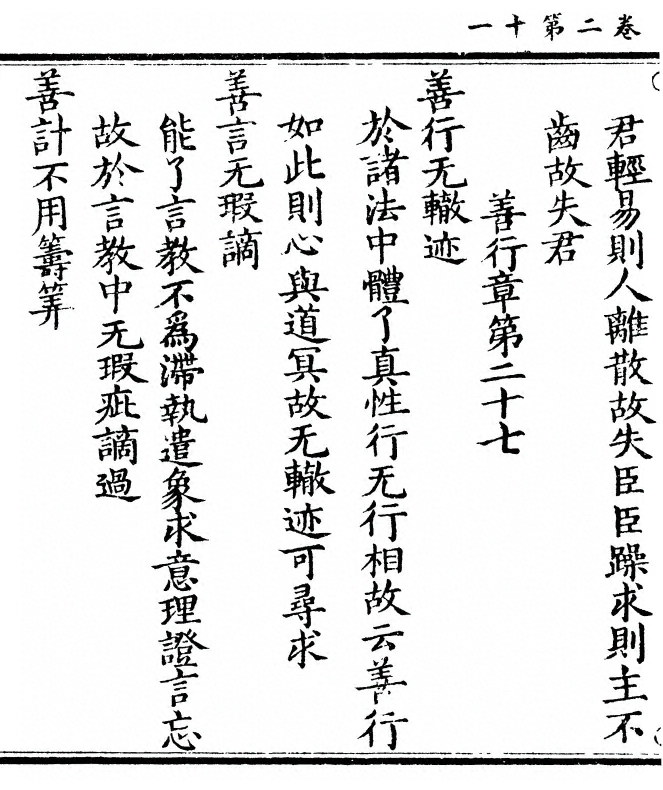 卷二第十一
君輕易則人離散故失臣臣躁求則主不
齒故失君
善行章第二十七
善行无轍迹
於諸法中體了真性行无行相故云善行
如此則心與道冥故无轍迹可尋求
善言无瑕謫
能了言教不爲滯執遣象求意理證言忘
故於言教中无瑕疵謫過
善計不用籌筭